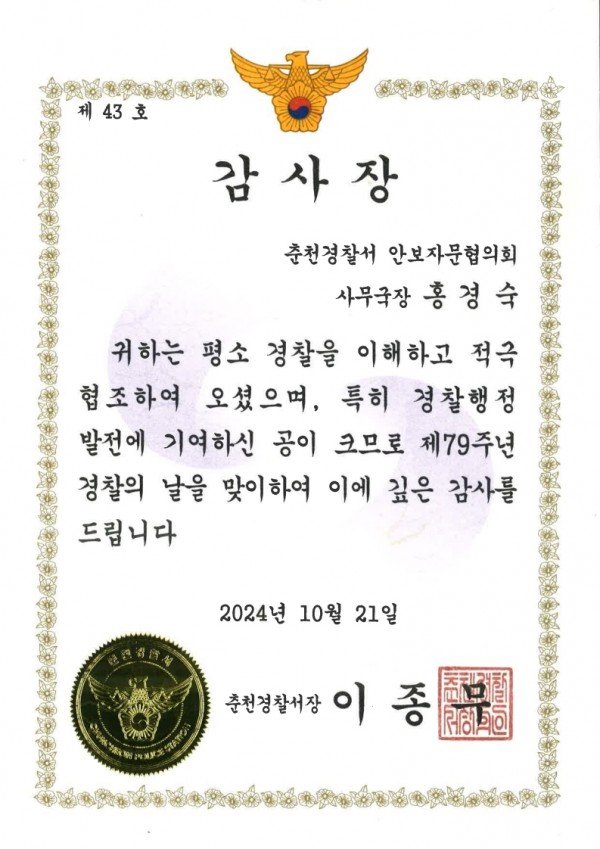 제 43 호
감사장
춘천경찰서 안보자문협의회
사무국장 홍경숙
귀하는 평소 경찰을 이해하고 적극
협조하여 오셨으며, 특히 경찰행정
발전에 기여하신 공이 크므로 제79주년
경찰의 날을 맞이하여 이에 깊은 감사를
드립니다
2024년 10월 21일
춘천경찰서
춘천경찰서장 이종무